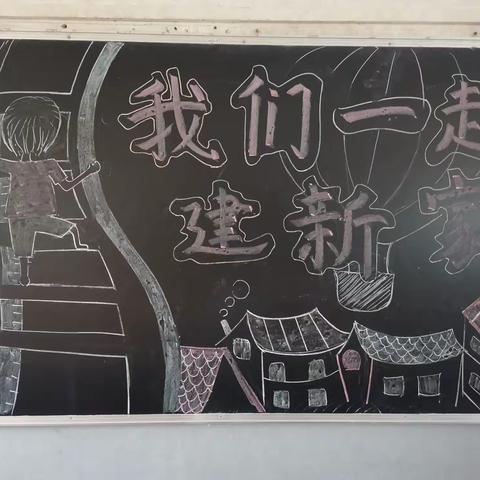 我们一起
建新家